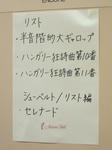 リスト
・半音階的大ギャロップ
・ハンガリー狂詩曲第10番
・ハンガリー狂詩曲第11番
シューベルト/リスト編
・セレナード